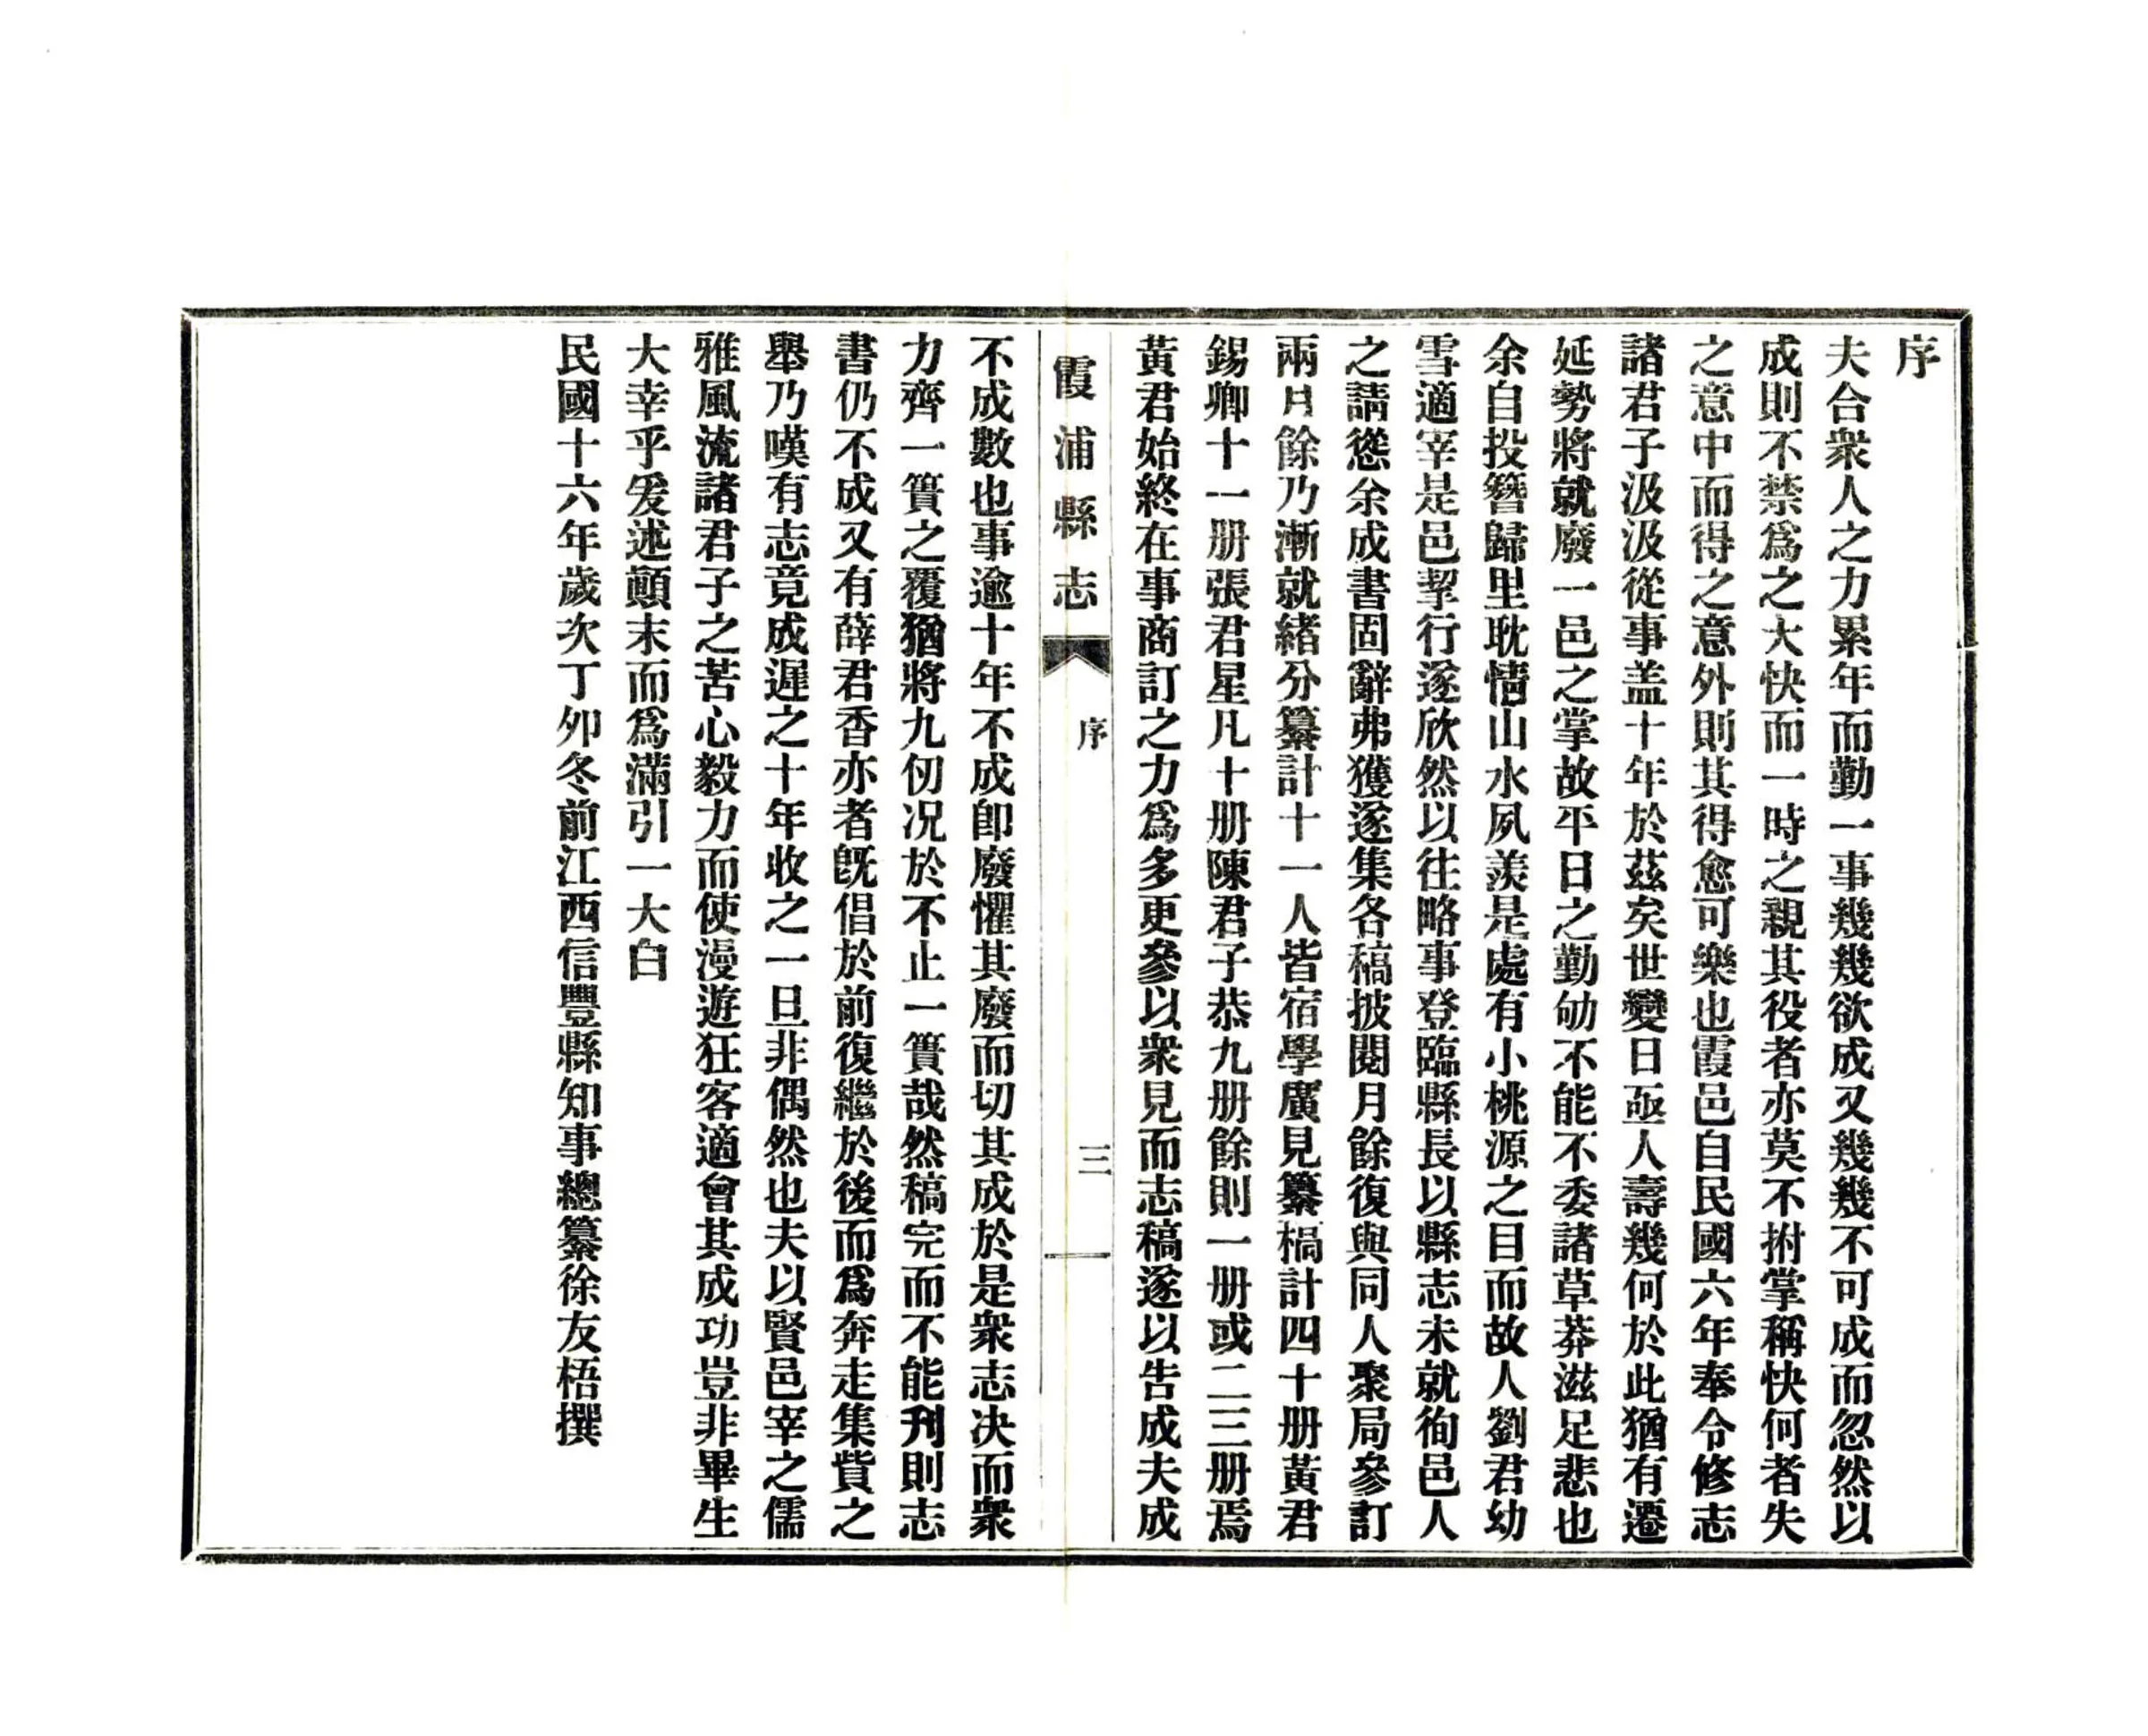 序
夫合衆人之力累年而勤一事幾幾欲成又幾幾不可成而忽然以
成則不禁爲之大快而一時之親其役者亦莫不拊掌稱快何者失
之意中而得之意外則其得愈可樂也霞邑自民國六年奉令修志
諸君子汲汲從事盖十年於茲矣世變日亟人壽幾何於此猶有遷
延勢將就廢一邑之掌故平日之勤劬不能不委諸草莽滋足悲也
余自投簪歸里耽情山水夙羨是處有小桃源之目而故人劉君幼
雪適宰是邑挈行遂欣然以往略事登臨縣長以縣志未就徇邑人
之請慫余成書固辭弗獲遂集各稿披閱月餘復與同人聚局參訂
兩月餘乃漸就緒分纂計十一人皆宿學廣見纂稿計四十册黃君
錫卿十一册張君星凡十册陳君子恭九册餘則一册或二三册焉
黃君始終在事商訂之力爲多更參以衆見而志稿遂以告成夫成
霞浦縣志
序
三
不成數也事逾十年不成卽廢懼其廢而切其成於是衆志决而衆
力齊一簣之覆猶將九仞况於不止一簣哉然稿完而不能刊則志
書仍不成又有薛君香亦者旣倡於前復繼於後而爲奔走集貲之
舉乃嘆有志竟成遲之十年收之一旦非偶然也夫以賢邑宰之儒
雅風流諸君子之苦心毅力而使漫遊狂客適會其成功豈非畢生
大幸乎爰述顚末而爲滿引一大白
民國十六年歲次丁夘冬前江西信豐縣知事總纂徐友梧撰